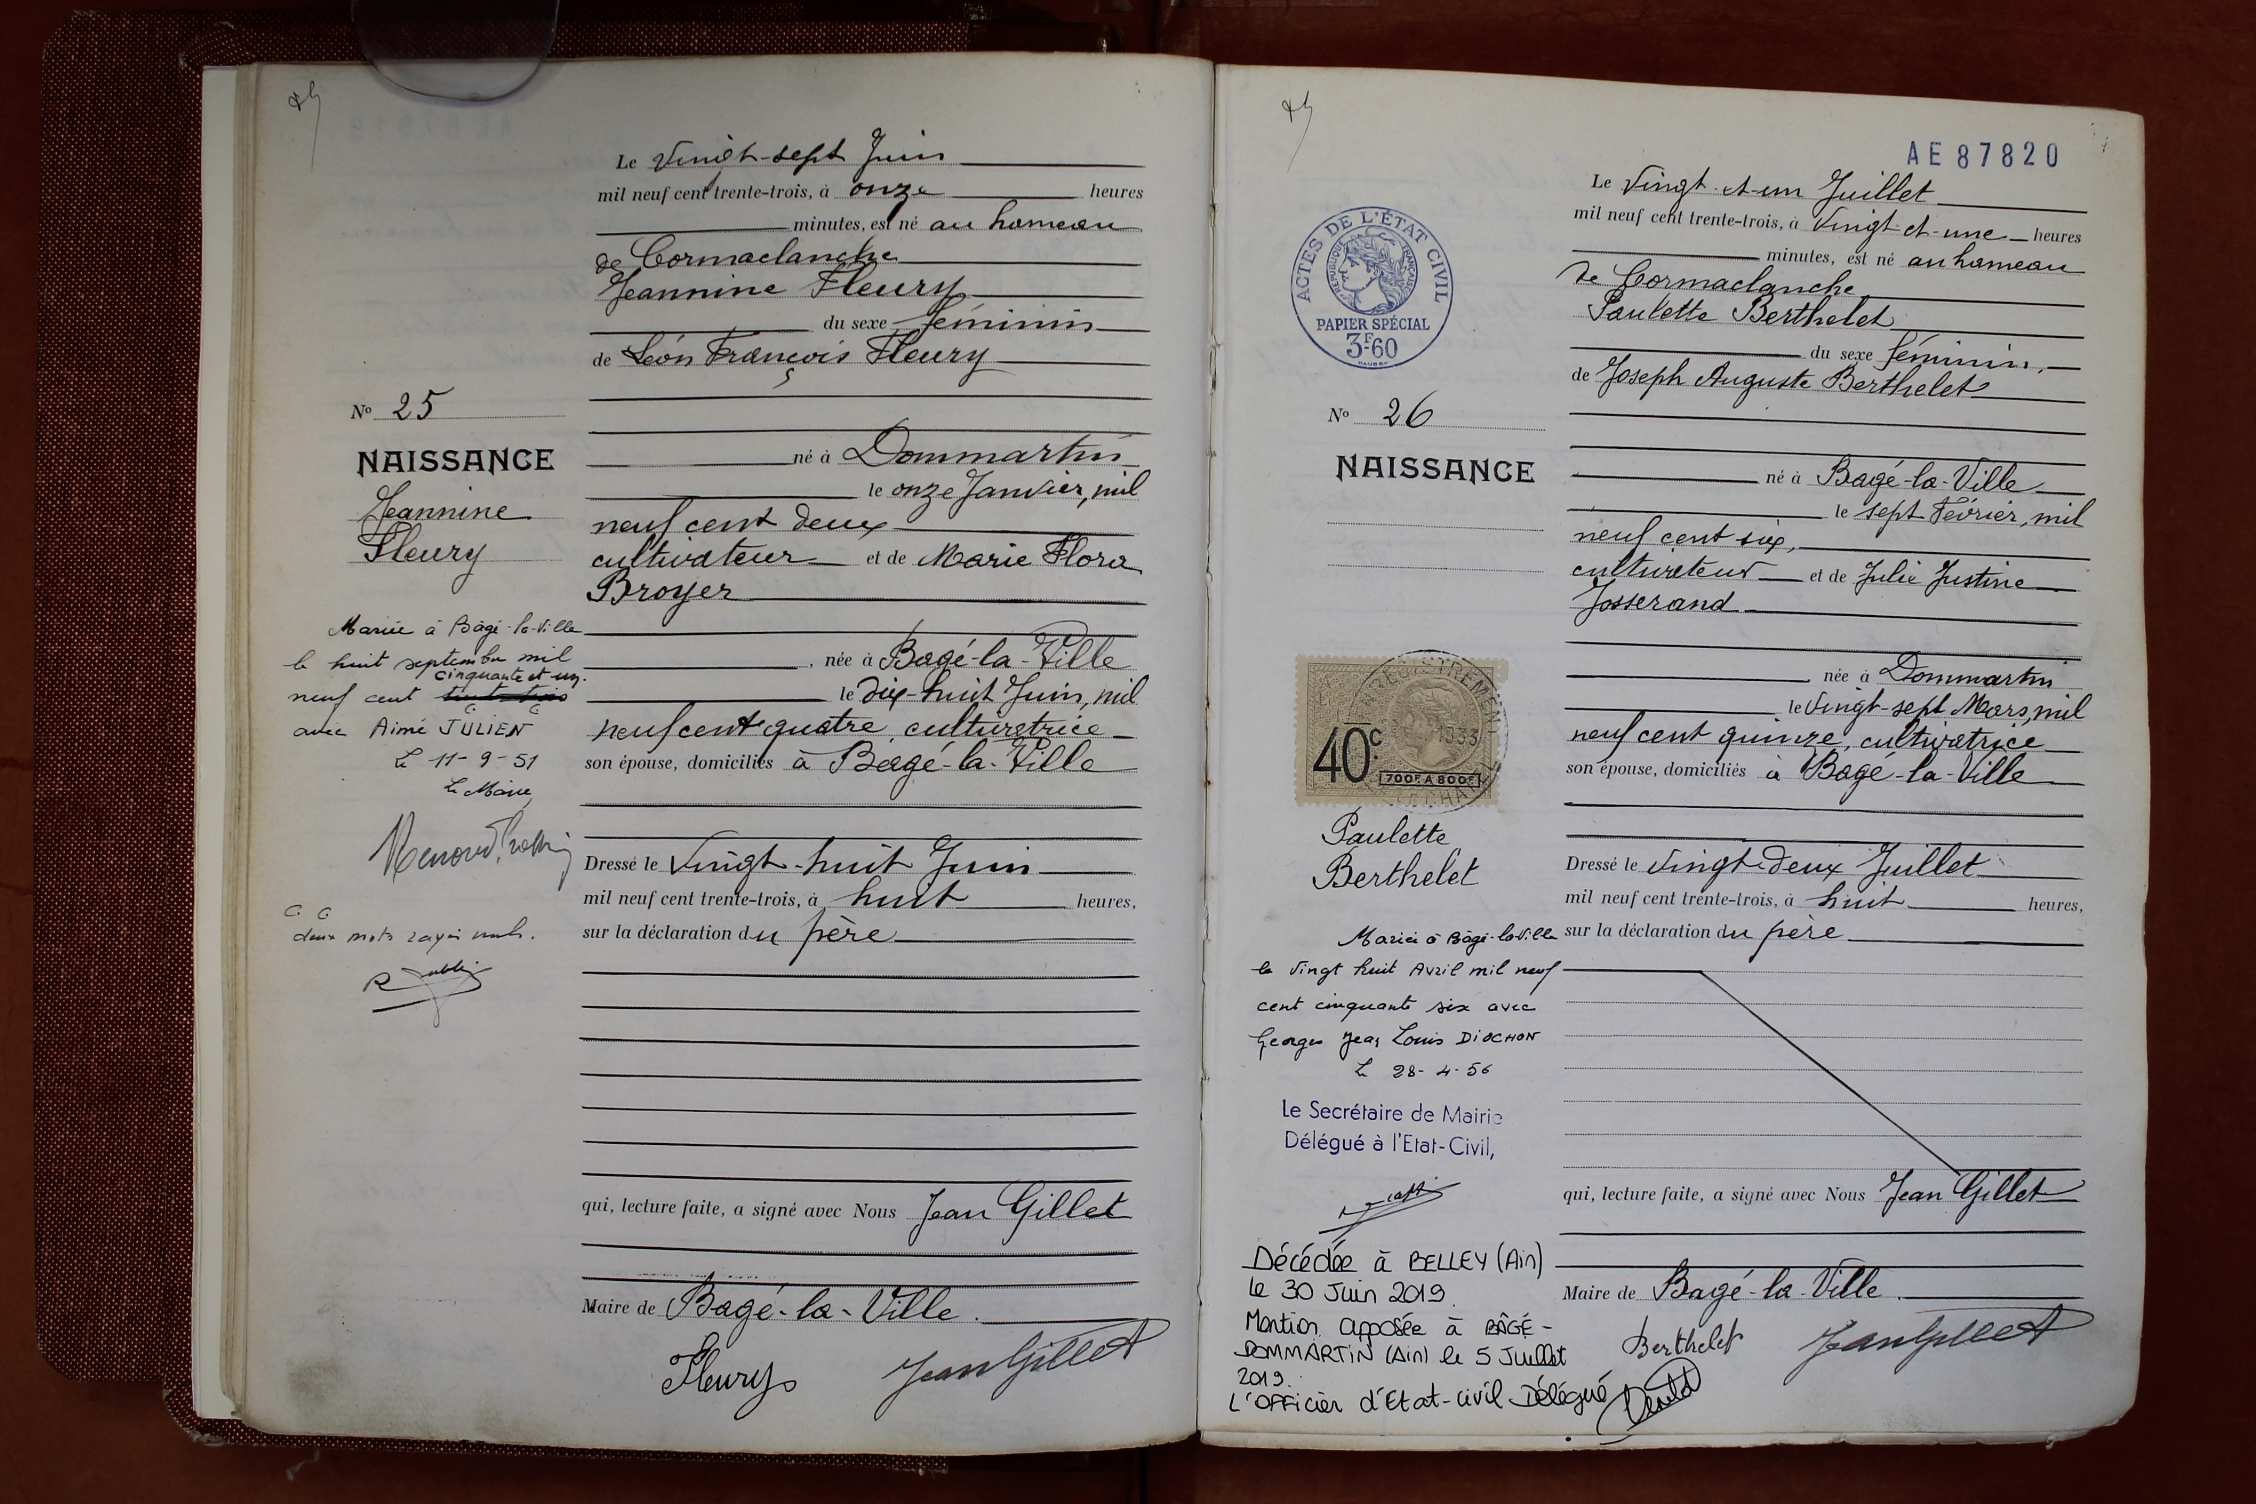 Le Vingt-sept Juin
mil neuf cent trente-trois, à onze heures
minutes, est né au hameau
de Cormaclanche
Jeannine Fleury
du sexe féminin
de Léon François Fleury
né à Dommartin
le onze Janvier, mil
neuf cent deux
cultivateur et de Marie Flora
Broyer
, née à Bagé-la-Ville
le Dix-huit Juin, mil
neuf cent quatre, cultivatrice
son épouse, domiciliés à Bagé-la-Ville
Dressé le Vingt-huit Juin
mil neuf cent trente-trois, à huit heures,
sur la déclaration du père
qui, lecture faite, a signé avec Nous Jean Gillet
Maire de Bagé-la-Ville.
Fleury Jean Gillet
No 25
NAISSANCE
Jeannine
Fleury
Mariée à Bâgé-la-Ville
le huit septembre mil
cinquante et un.
neuf cent
avec Aimé JULIEN
Le 11-9-51
Le Maire
deux mots rayés nuls.
AE87820
Le Vingt-et-un Juillet
mil neuf cent trente-trois, à Vingt-et-une heures
minutes, est né au hameau
de Cormaclanche
Paulette Berthelet
du sexe féminin,
de Joseph Auguste Berthelet
né à Bagé-la-Ville
le sept Février, mil
neuf cent six,
cultivateur et de Julie Justine
Josserand
née à Dommartin
le Vingt-sept Mars, mil
neuf cent quinze, cultivatrice
son épouse, domiciliés à Bagé-la-Ville
Dressé le Vingt-deux Juillet
mil neuf cent trente-trois, à huit heures,
sur la déclaration du père
qui, lecture faite, a signé avec Nous Jean Gillet
Maire de Bagé-la-Ville.
Berthelet Jean Gillet
ACTES DE L'ÉTAT CIVIL
RÉPUBLIQUE FRANÇAISE
PAPIER SPÉCIAL
3F60
No 26
NAISSANCE
40c
700F A 800F
Paulette
Berthelet
Mariée à Bâgé-la-Ville
le vingt huit Avril mil neuf
cent cinquante six avec
Georges Jean Louis DIOCHON
Le 28-4-56
Le Secrétaire de Mairie
Délégué à l'Etat-Civil,
Décédée à BELLEY (Ain)
le 30 Juin 2019.
Mention apposée à BÂGÉ-
DOMMARTIN (Ain) le 5 Juillet
2019.
L'OFFicier d'Etat-civil Délégué